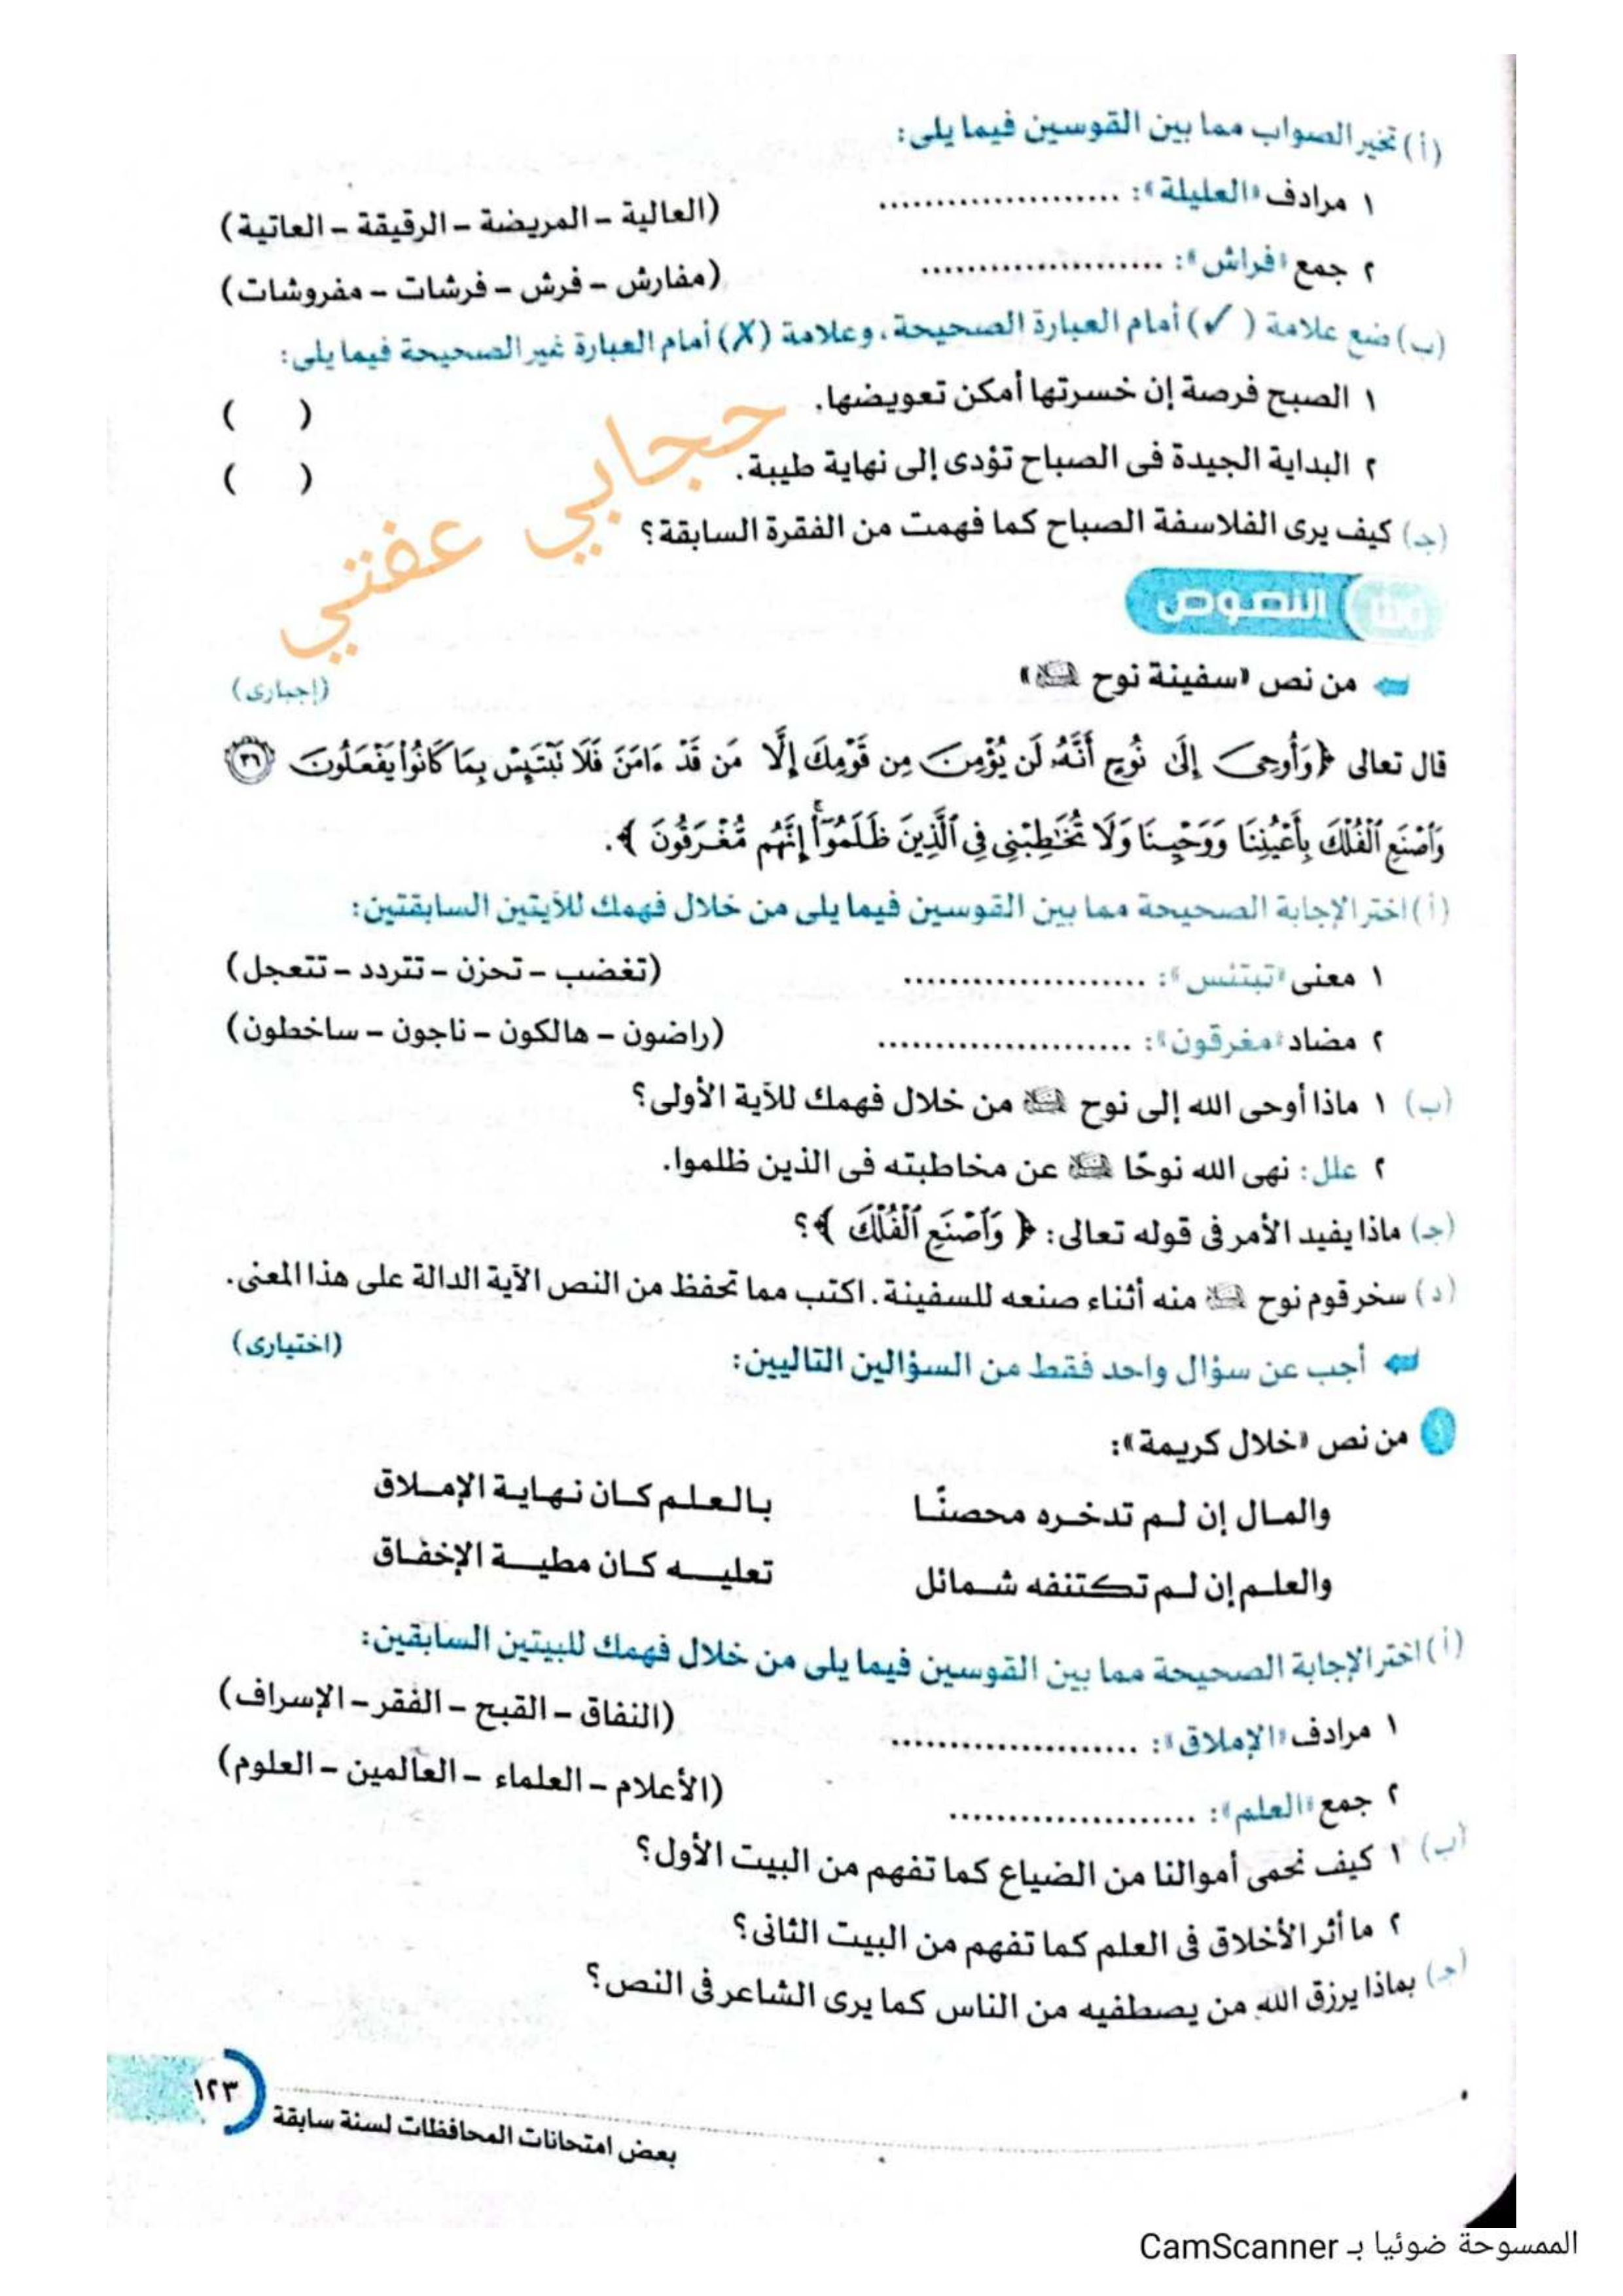 (أ) تخير الصواب مما بين القوسين فيما يلى:
١ مرادف «العليلة»: ..................... (العالية - المريضة - الرقيقة - العاتية)
٢ جمع «فراش»: ..................... (مفارش - فرش - فرشات - مفروشات)
(ب) ضع علامة (✓) أمام العبارة الصحيحة، وعلامة (✗) أمام العبارة غير الصحيحة فيما يلى:
١ الصبح فرصة إن خسرتها أمكن تعويضها. ( )
٢ البداية الجيدة فى الصباح تؤدى إلى نهاية طيبة. ( )
(جـ) كيف يرى الفلاسفة الصباح كما فهمت من الفقرة السابقة؟
حجابي عفتي
النصوص
من نص «سفينة نوح» (إجبارى)
قال تعالى ﴿وَأُوحِىَ إِلَىٰ نُوحٍ أَنَّهُۥ لَن يُؤْمِنَ مِن قَوْمِكَ إِلَّا مَن قَدْ ءَامَنَ فَلَا تَبْتَئِسْ بِمَا كَانُوا۟ يَفْعَلُونَ ٣٦
وَٱصْنَعِ ٱلْفُلْكَ بِأَعْيُنِنَا وَوَحْيِنَا وَلَا تُخَٰطِبْنِى فِى ٱلَّذِينَ ظَلَمُوٓا۟ ۚ إِنَّهُم مُّغْرَقُونَ ﴾.
(أ) اختر الإجابة الصحيحة مما بين القوسين فيما يلى من خلال فهمك للآيتين السابقتين:
١ معنى «تبتئس»: ..................... (تغضب - تحزن - تتردد - تتعجل)
٢ مضاد «مغرقون»: ..................... (راضون - هالكون - ناجون - ساخطون)
(ب) ١ ماذا أوحى الله إلى نوح من خلال فهمك للآية الأولى؟
٢ علل: نهى الله نوحًا عن مخاطبته فى الذين ظلموا.
(جـ) ماذا يفيد الأمر فى قوله تعالى: ﴿ وَٱصْنَعِ ٱلْفُلْكَ ﴾؟
(د) سخر قوم نوح منه أثناء صنعه للسفينة. اكتب مما تحفظ من النص الآية الدالة على هذا المعنى.
أجب عن سؤال واحد فقط من السؤالين التاليين: (اختيارى)
١ من نص «خلال كريمة»:
والمال إن لم تدخره محصنًا بالعلم كان نهاية الإملاق
والعلم إن لم تكتنفه شمائل تعليه كان مطية الإخفاق
(أ) اختر الإجابة الصحيحة مما بين القوسين فيما يلى من خلال فهمك للبيتين السابقين:
١ مرادف «الإملاق»: ..................... (النفاق - القبح - الفقر - الإسراف)
٢ جمع «العلم»: ..................... (الأعلام - العلماء - العالمين - العلوم)
(ب) ١ كيف نحمى أموالنا من الضياع كما تفهم من البيت الأول؟
٢ ما أثر الأخلاق فى العلم كما تفهم من البيت الثانى؟
(جـ) بماذا يرزق الله من يصطفيه من الناس كما يرى الشاعر فى النص؟
١٢٣
بعض امتحانات المحافظات لسنة سابقة
الممسوحة ضوئيا بـ CamScanner